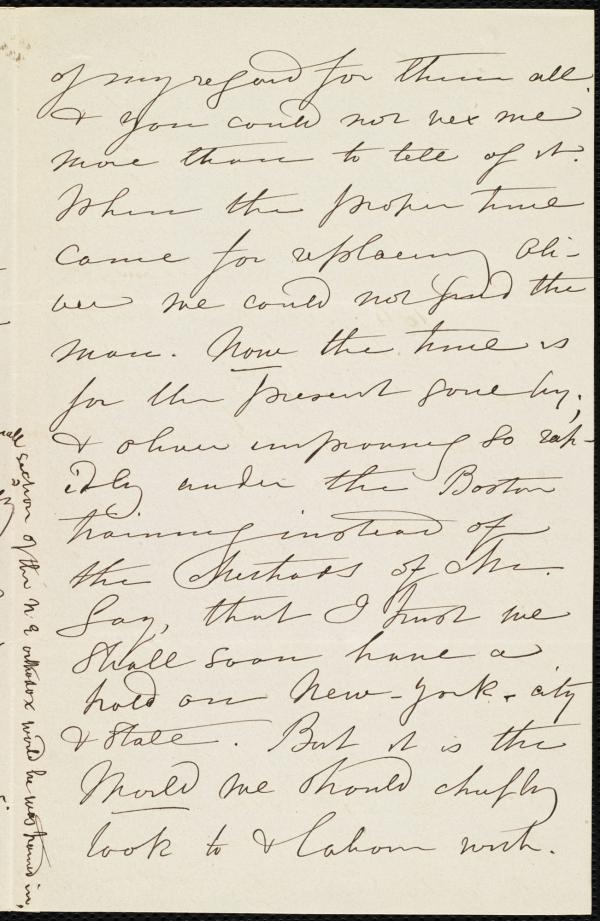 of my regard for them all
& you could not vex me
more than to tell of it.
When the proper time
came for replacing Oli-
ver we could not find the
man. Now the time is
for the present gone by;
& Oliver improving so rap-
idly under the Boston
training instead of
the Methods of Mr.
Gay, that I trust we
shall soon have a
hold on New-York-city
& State. But it is the
World we should chiefly
look to & labour with.
small section of the N. E orthodox world he was trained in,